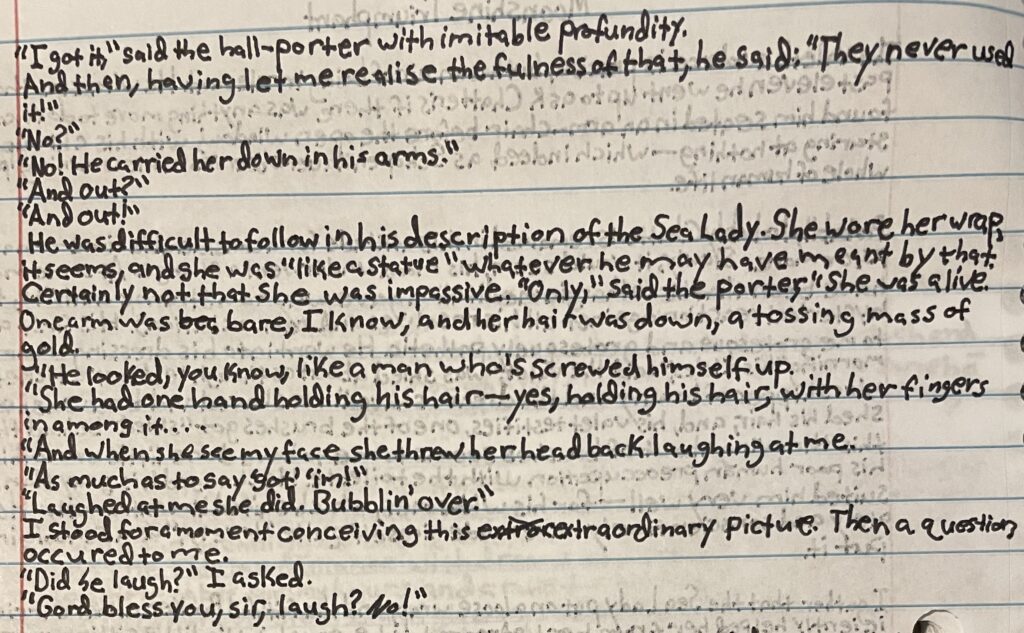 "I got it," said the hall-porter with imitable profundity.
And then, having let me realise the fulness of that, he said: "They never used
it!"
"No?"
"No! He carried her down in his arms."
"And out?"
"And out!"
He was difficult to follow in his description of the Sea Lady. She wore her wrap,
it seems, and she was "like a statue" whatever he may have meant by that.
Certainly not that she was impassive. "Only," said the porter "she was alive.
One arm was bea bare, I know, and her hair was down, a tossing mass of
gold.
"He looked, you know, like a man who's screwed himself up.
"She had one hand holding his hair—yes, holding his hair, with her fingers
in among it....
"And when she see my face she threw her head back laughing at me.
"As much as to say got 'im!"
"Laughed at me she did. Bubblin' over."
I stood for a moment conceiving this extraordinary picture. Then a question
occured to me.
"Did he laugh?" I asked.
"Gord bless you, sir, laugh? No!"